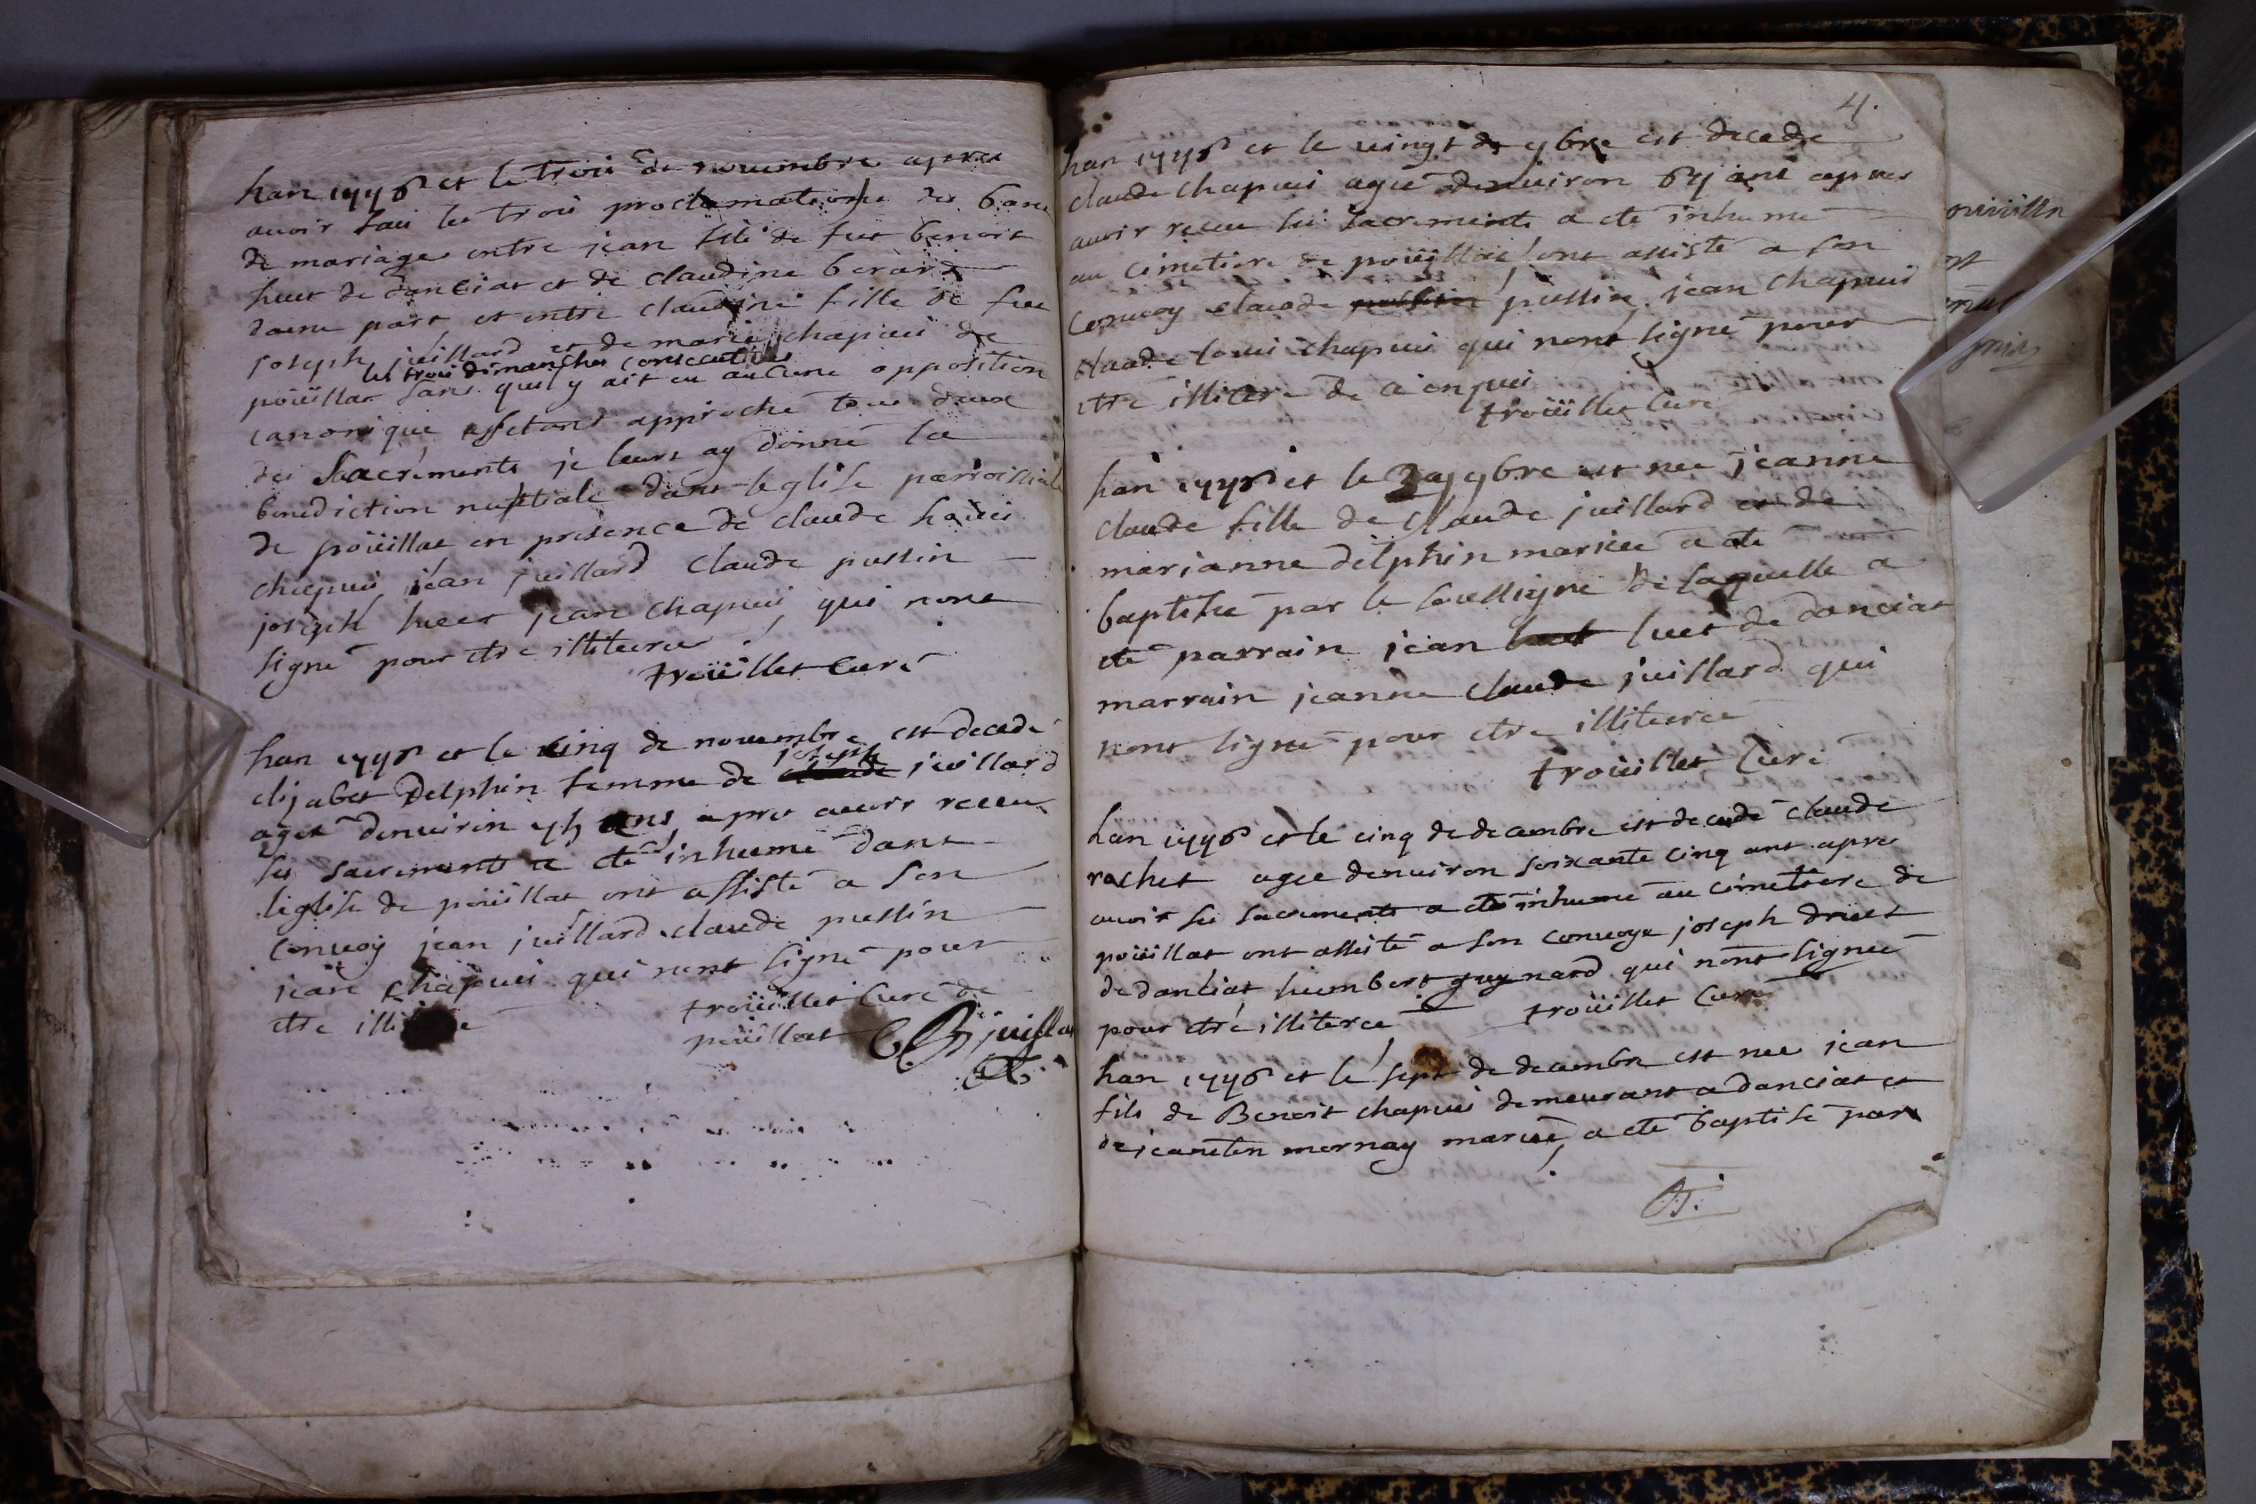 han 1776 et le troi de novembre apres
avoir faii les troi proclamations des bans
de mariage entre jean fils de fut benoit
huet de danciat et de claudine berard
dune part et entre claudine fille de fue
joseph juillard et de marie chapuis de
les trois dimanches consecutives
poüillat sans quil y ait eu aucune opposition
canonique estant approché tous deux
des Sacrements je leurs ay donné la
benediction nuptiale dans leglise parroissiale
de poüillat en presence de claude
chapuis jean juillard claude pussin
joseph huet jean chapuis qui nont
signé pour etre illiteres
troüillet Curé
han 1776 et le cinq de novembre est decedé
elizabet Delphin femme de joseph juillard
ageé denviron ans apres avoir receu
ses sacrements a eté inhumé dans
leglise de poüillat ont assisté a son
convoy jean juillard claude pussin
jean chapuis qui nont signé pour
etre
troüillet Curé de
poüillat juillard
4.
han 1776 et le vingt de 9bre est decede
claude chapuis agué denviron ans apres
avoir receu les sacrements a eté inhumé
au cimetiere de poüillat ont assisté a son
convoy claude pussin jean chapuis
claude louis chapuis qui nont signé pour
etre illitere de ce enquis
troüillet Curé
han 1776 et le 9bre est nee jeanne
claude fille de claude juillard et de
marianne delphin mariee a eté
baptisée par le soussigné de laquelle a
eté parrain jean huet de danciat
marrain jeanne claude juillard qui
nont signé pour etre illiteree
troüillet Curé
han 1776 et le cinq de decembre est decedé claude
rochet agee denviron soixante cinq ans apres
avoir ses sacrements a eté inhumé au cimetiere de
poüillat ont assité a son convoye joseph druet
de danciat humbert guynard qui nont signeé
pour etre illiterce troüillet Curé
han 1776 et le sept de decembre est nee jean
fils de Benoit chapuis demeurant a danciat et
de mornay marieé, a eté baptisé par